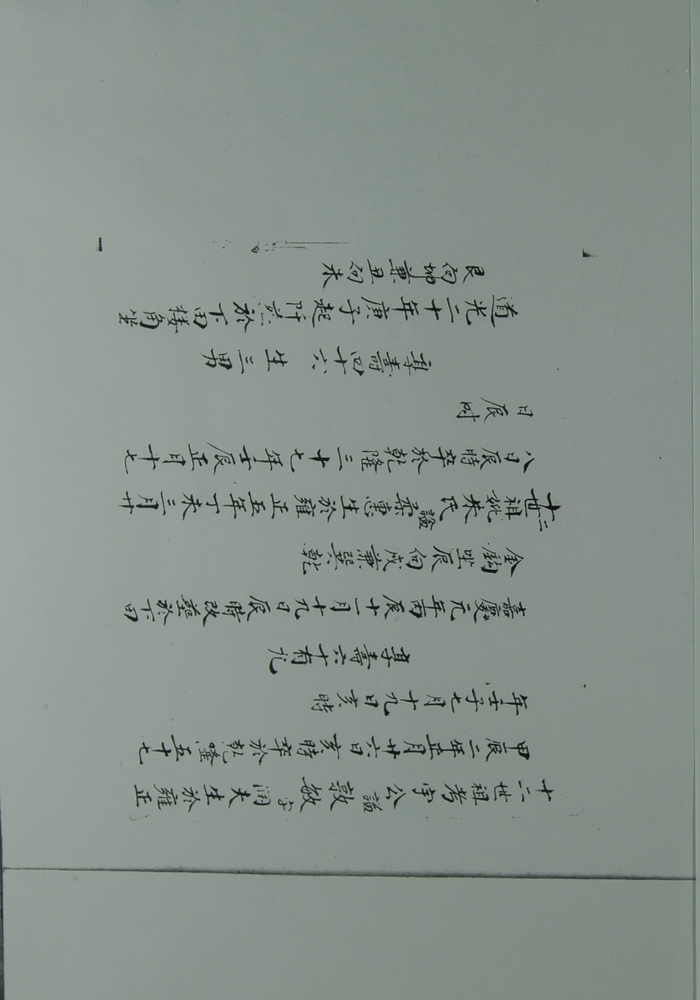 十二世祖考宇公諡敦敏字润夫生於雍正
甲辰二年五月廿六日亥時卒於乾隆五十七
年壬子七月十九日亥時
享壽六十有九
嘉慶元年丙辰十一月十九日辰時改塟於下田
金鈎坐辰向戌兼巽乾
十二世祖妣朱氏諡柔惠生於雍正五年丁未三月廿
八日辰時卒於乾隆三十七年壬辰正月十七
日辰时
享壽四十六 生三男
道光二十年庚子起阡於下田樓角坐
艮向坤兼丑向未